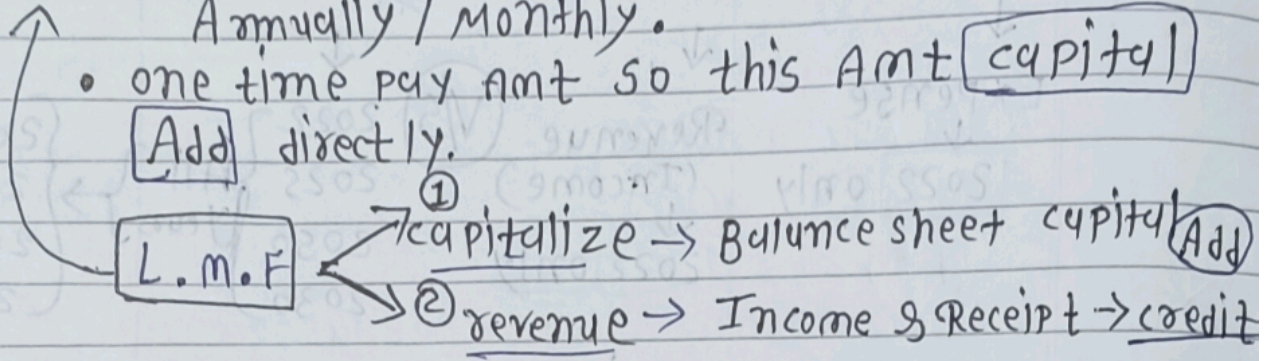 Annually / Monthly.
• one time pay Amt so this Amt capital
Add directly.
L.M.F
① capitalize → Balance sheet capital Add
② revenue → Income & Receipt → credit